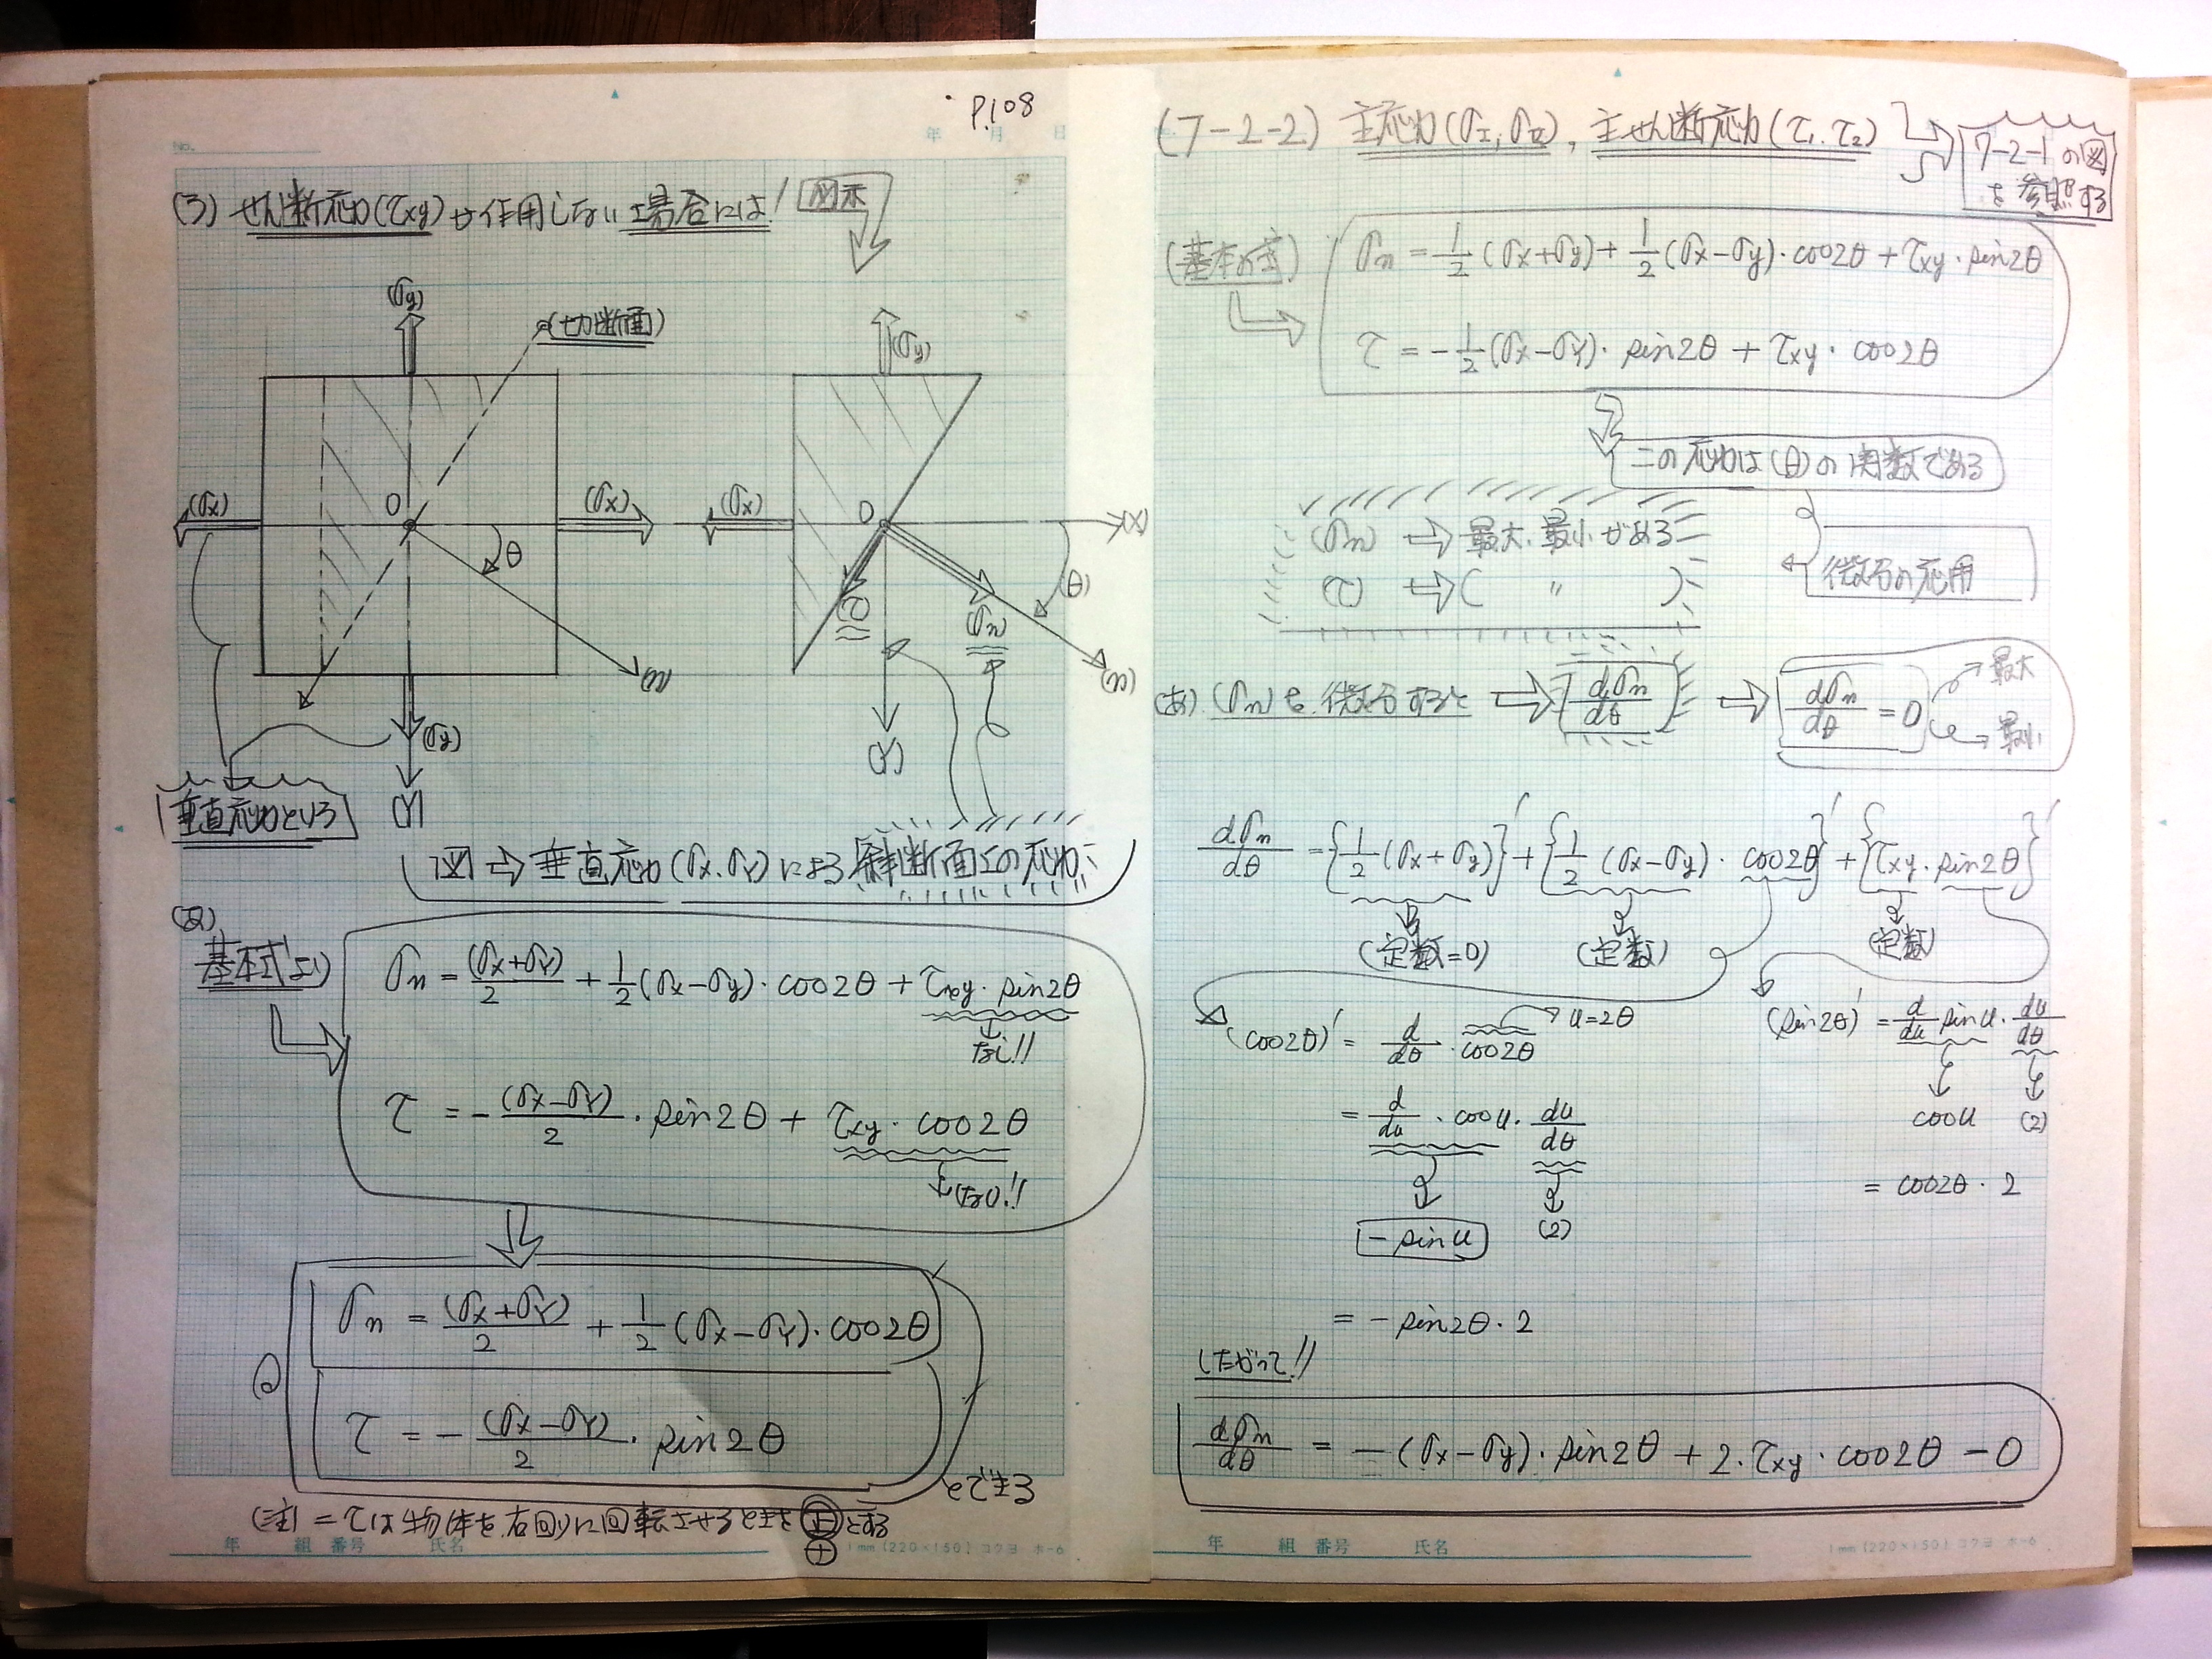 P.108
No.
年 月 日
(3) せん断応力(τxy)が作用しない場合には! 図示
(σy)
(切断面)
(σx)
O
(σx)
θ
(n)
(σy)
(Y)
垂直応力という
(σy)
(σx)
O
(X)
(θ)
(τ)
(σn)
(n)
(Y)
図⇒垂直応力(σx,σY)による斜断面上の応力
(あ)
基本式より
σn = (σx+σY)/2 + 1/2(σx−σy)・cos2θ + τxy・sin2θ
なし!!
τ = −(σx−σY)/2・sin2θ + τxy・cos2θ
なし!!
σn = (σx+σY)/2 + 1/2(σx−σY)・cos2θ
τ = −(σx−σY)/2・sin2θ
(注) = τは物体を右回りに回転させるときを正とする
+
年 組 番号 氏名
1mm (220×150) コクヨ ホ-6
(7-2-2) 主応力(σⅠ,σⅡ), 主せん断応力(τ1,τ2)
7-2-1の図
を参照する
(基本の式)
σn = 1/2(σx+σy) + 1/2(σx−σy)・cos2θ + τxy・sin2θ
τ = −1/2(σx−σY)・sin2θ + τxy・cos2θ
この応力は(θ)の関数である
(σn) ⇒ 最大、最小がある
(τ) ⇒ ( 〃 )
微分の応用
(あ) (σn)を微分すると ⇒ dσn/dθ ⇒ dσn/dθ = 0
最大
最小
dσn/dθ = {1/2(σx+σy)}' + {1/2(σx−σy)・cos2θ}' + {τxy・sin2θ}'
(定数=0) (定数) (定数)
(cos2θ)' = d/dθ・cos2θ u=2θ
(sin2θ)' = d/du sinu・du/dθ
= d/du・cosu・du/dθ
cosu (2)
−sinu (2)
= cos2θ・2
= −sin2θ・2
したがって!!
dσn/dθ = −(σx−σy)・sin2θ + 2・τxy・cos2θ − 0
年 組 番号 氏名
1mm (220×150) コクヨ ホ-6